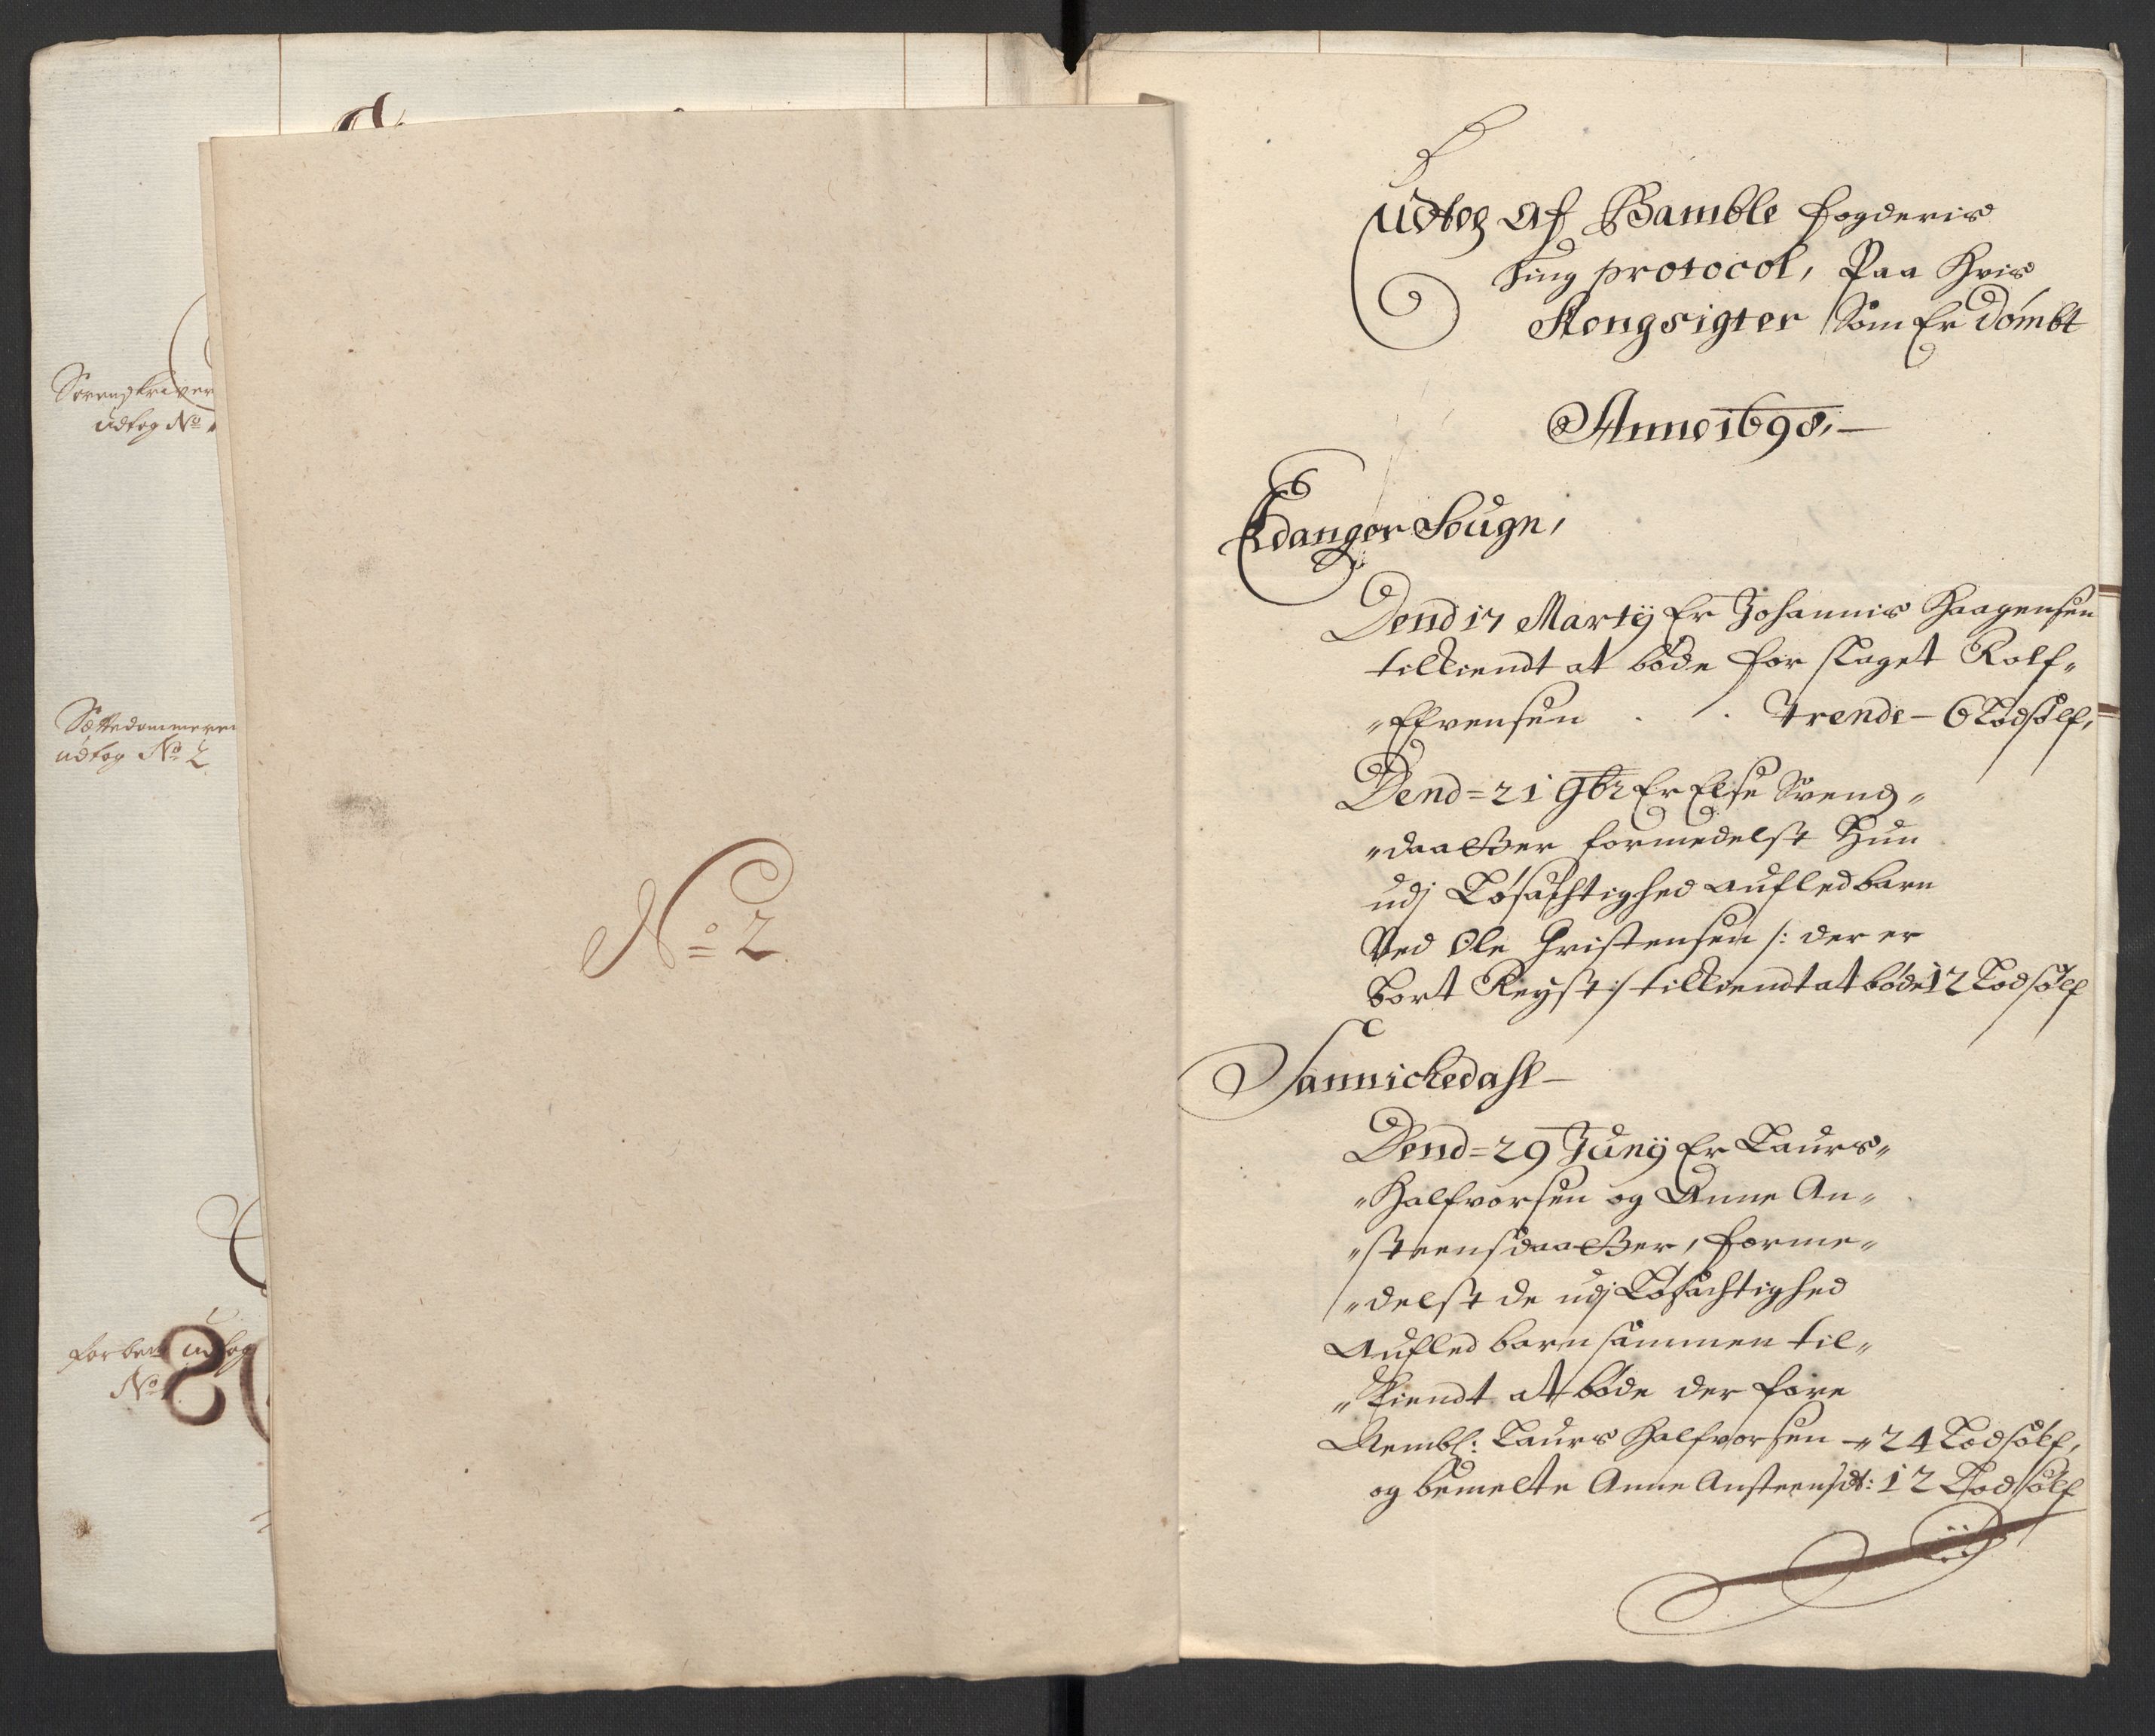 Sorenskriver
udtog No
Sættedommeren
udtog No 2
forben udtog
No
No 2
Udtog Af Bamble fogderis
Ting protocol, Paa Hvis
Kongsigter Som Er dømbt
Anno 1698,
Eidanger Sougn,
Dend 17 Martij Er Johannis Haagensen
tilkiendt at bøde for slaget Rolf„
„Efvensen . . Trende – 6 Lodsølf,
Dend = 21 9br Er Else Svend„
„daatter formedelst Hun
udj Løsachtighed Aufled barn
Ved Ole Christensen /: der er
bort Reyst :/ tilkiendt at bøde 12 Lodsølf
Sannickedahl –
Dend = 29 Junij Er Laurs„
„Halfvorsen og Anne An„
„steensdaatter, forme„
„delst de udj Løsachtighed
Aufled barn sammen til„
„kiendt at bøde der fore
Nembl: Laurs Halfvorsen – 24 Lodsølf,
og bemelte Anne Ansteensdt: 12 Lodsølf